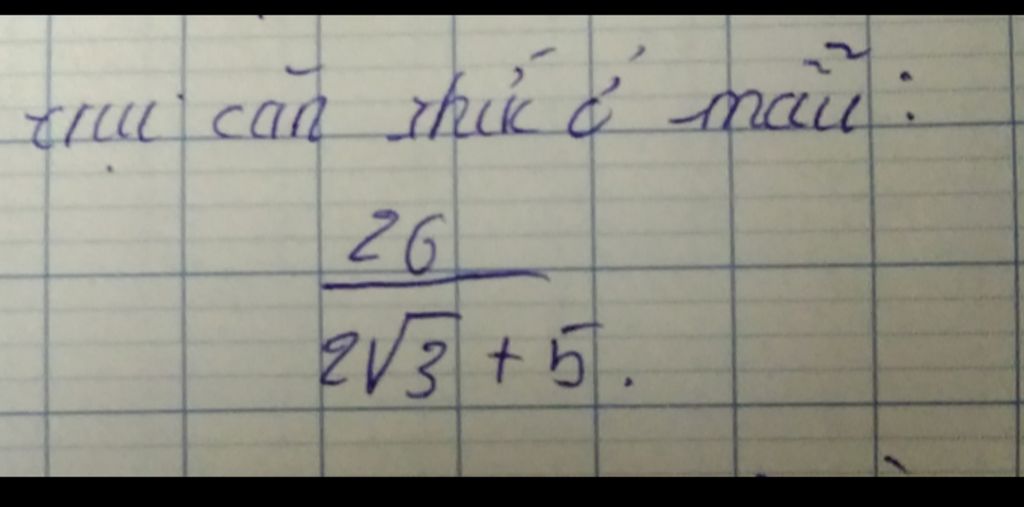 trục căn thức ở mẫu :
26
2√3 + 5 .